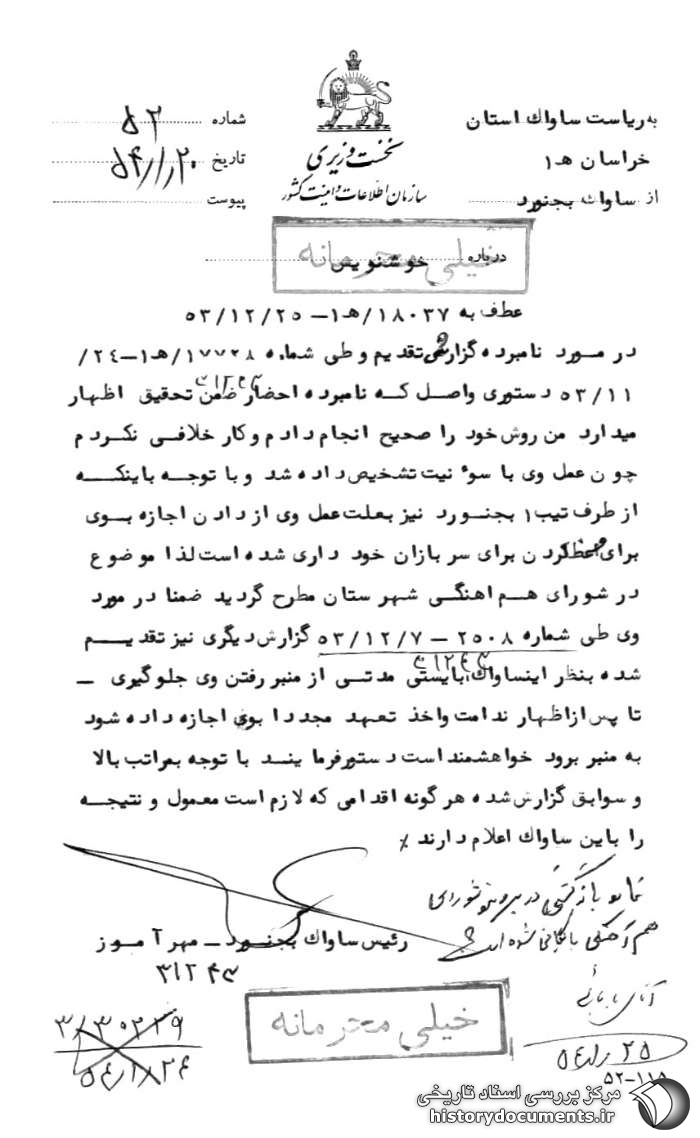 به ریاست ساواك استان
خراسان هـ ۱
از ساواك بجنورد
نخست وزیری
سازمان اطلاعات و امنیت کشور
شماره ۵۲
تاریخ ۵۴/۱/۲۰
پیوست
خیلی محرمانه
درباره خوشنویس
عطف به ۱۸۰۳۷/هـ۱ـ ۵۳/۱۲/۲۵
در مورد نامبرده گزارشی تقدیم و طی شماره ۱۷۷۲۸/هـ۱ـ۲۴/
۵۳/۱۱ دستوری واصل که نامبرده احضار ضمن تحقیق اظهار
میدارد من روش خود را صحیح انجام دادم و کار خلافی نکردم
چون عمل وی با سوء نیت تشخیص داده شد و با توجه باینکه
از طرف تیپ ۱ بجنورد نیز بعلت عمل وی از دادن اجازه بوی
برای کردن برای سربازان خود داری شده است لذا موضوع
در شورای هم اهنگی شهرستان مطرح گردید ضمنا در مورد
وی طی شماره ۲۵۰۸ ـ ۵۳/۱۲/۷ گزارش دیگری نیز تقدیم
شده بنظر اینساواك بایستی مدتی از منبر رفتن وی جلوگیری ـ
تا پس از اظهار ندامت واخذ تعهد مجددا بوی اجازه داده شود
به منبر برود خواهشمند است دستور فرمایند با توجه بمراتب بالا
و سوابق گزارش شده هر گونه اقدامی که لازم است معمول و نتیجه
را باین ساواك اعلام دارند ٪
در شورای
هم آهنگی بایگانی شود
رئیس ساواك بجنورد ـ مهرآموز
۳۱۲۴۳
خیلی محرمانه
آقای بابائی
۲۵
۵۲-۱۱۵
مرکز بررسی اسناد تاریخی
historydocuments.ir